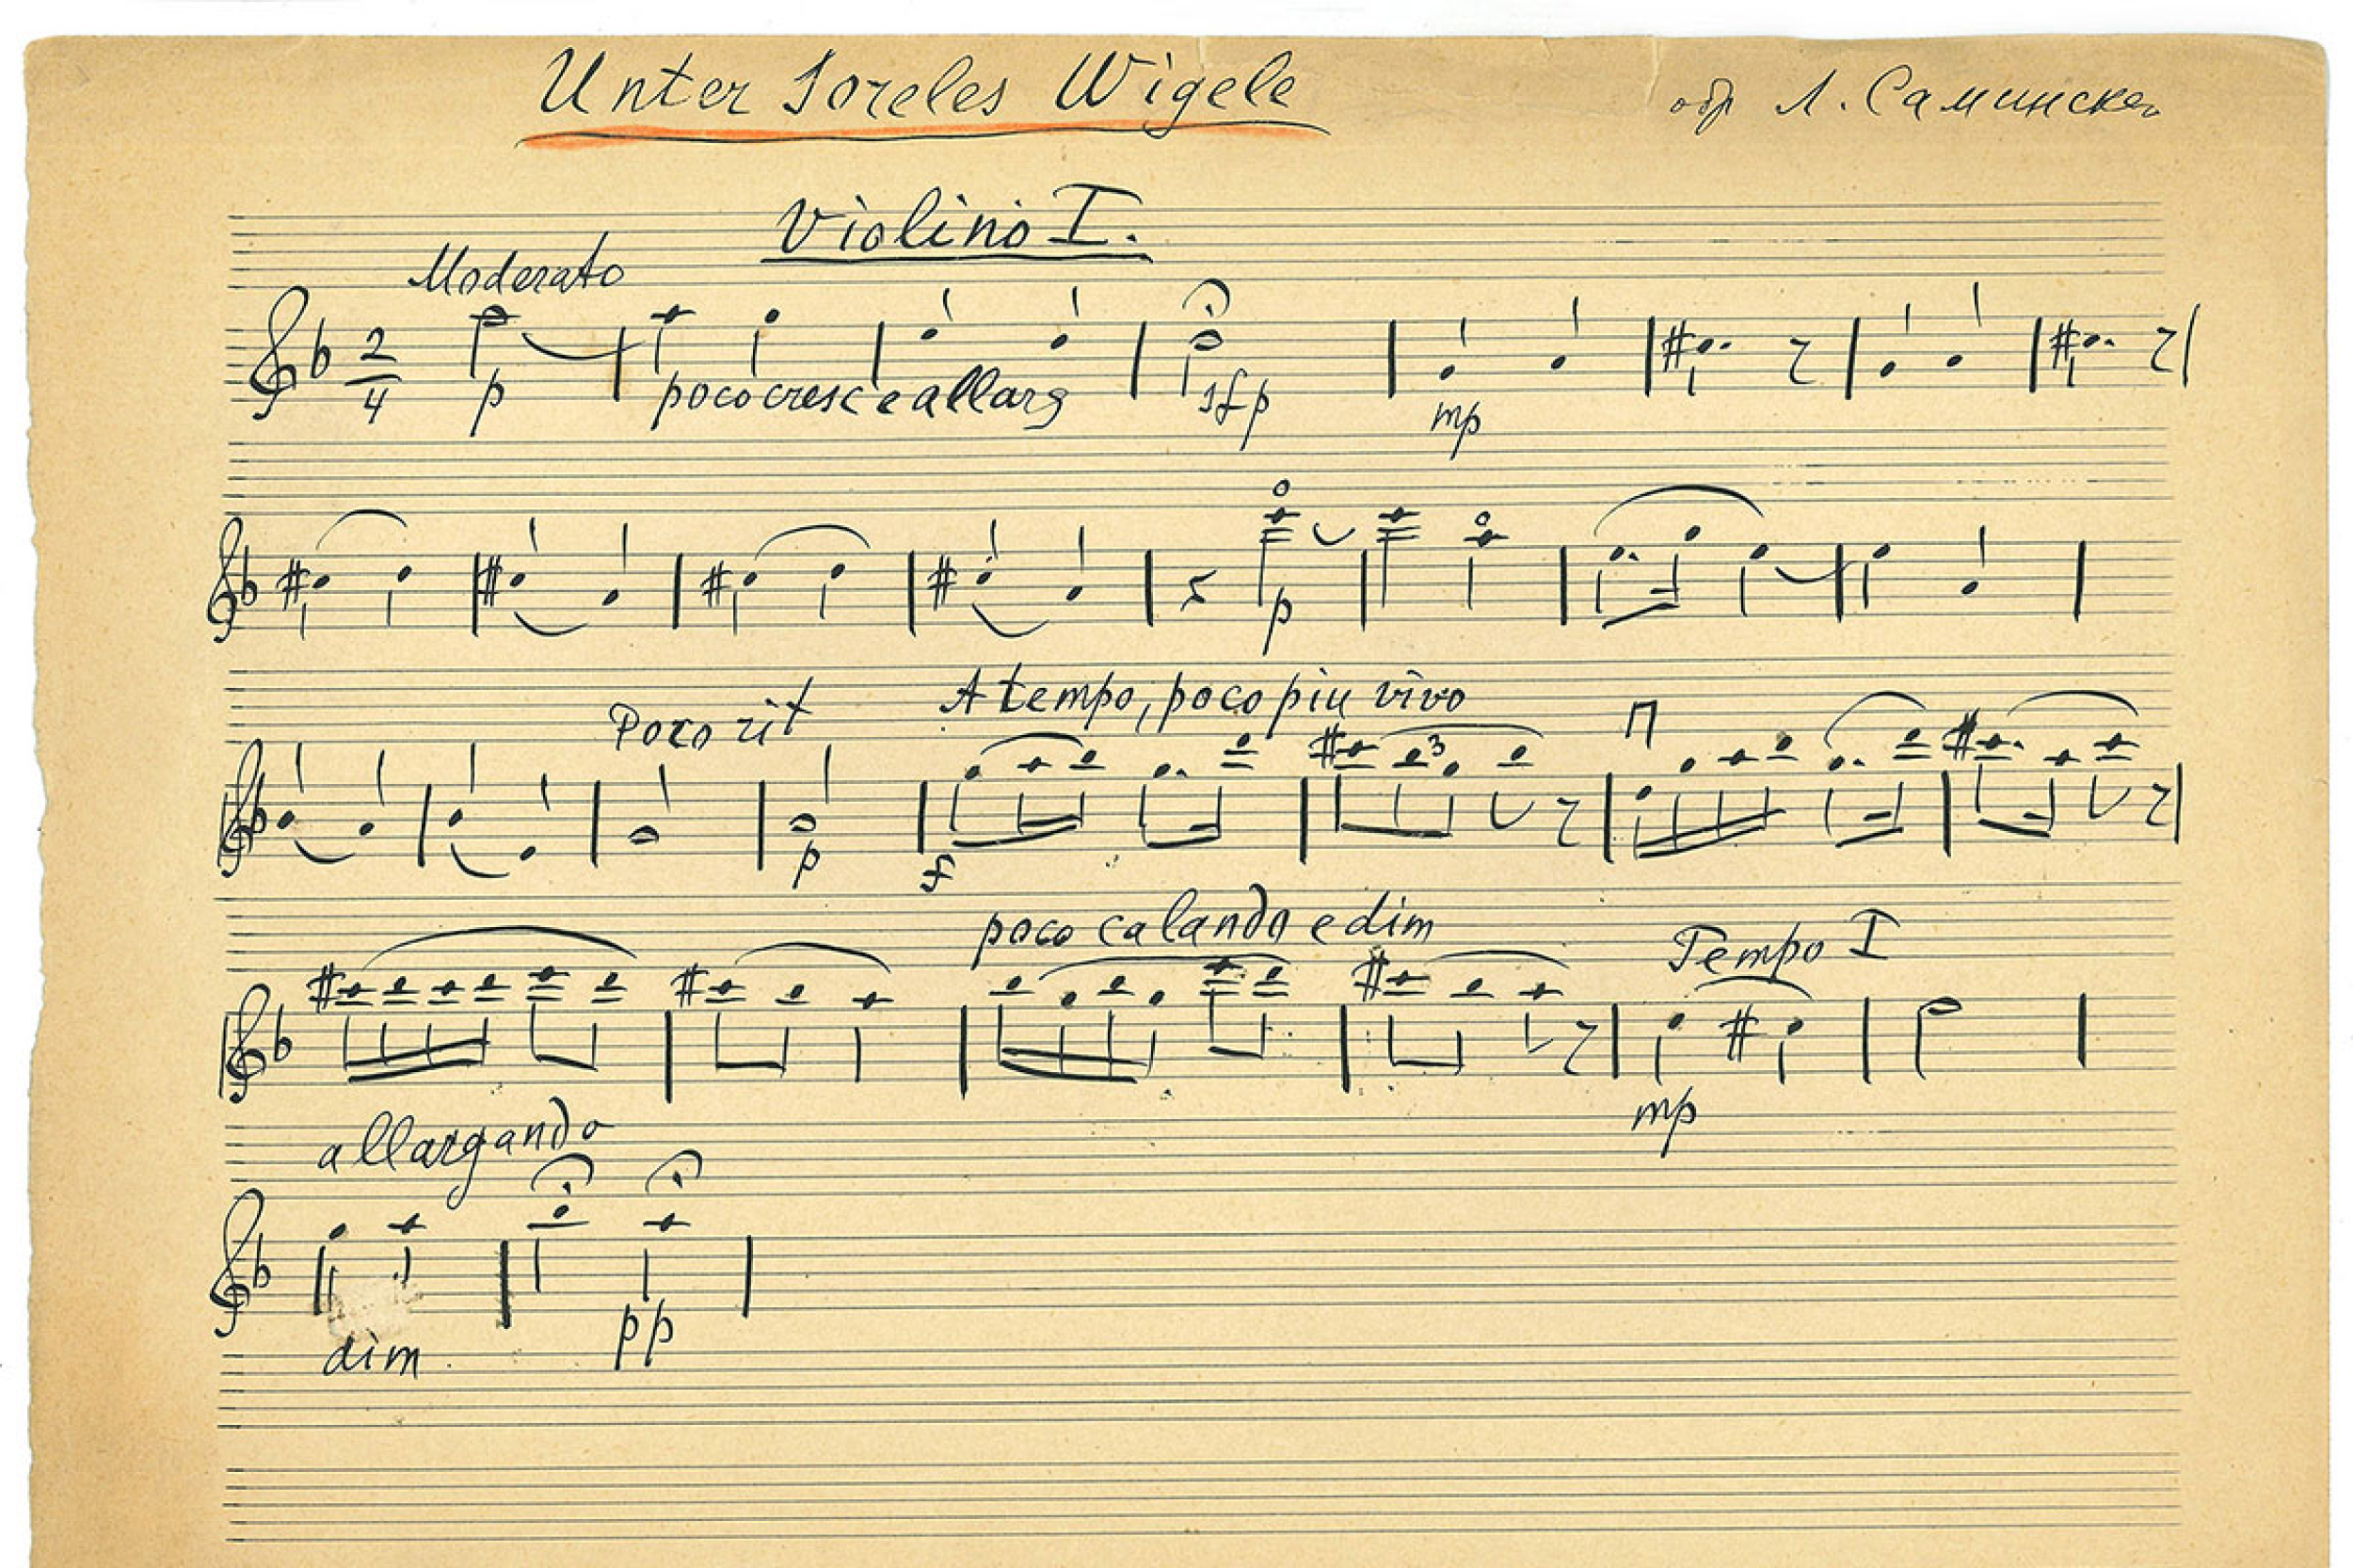 Unter Soreles Wigele
обр Л. Саминског
Violino I.
Moderato
2
4
p poco cresc e allarg sfp mp
p
Poco rit A tempo, poco piu vivo
3
p f
poco calando e dim Tempo I
mp
allargando
dim pp